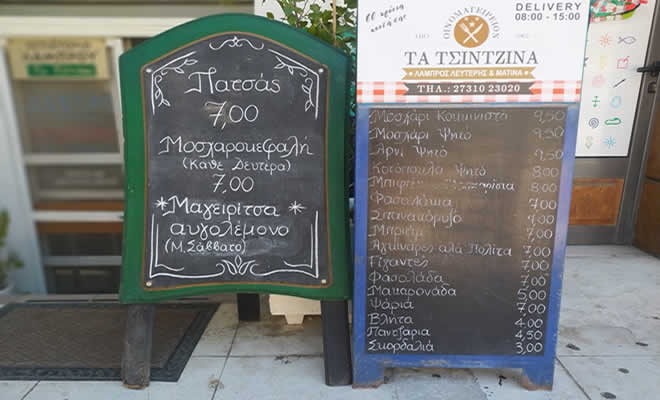 Πατσάς
7,00
Μοσχαροκεφαλή
(Κάθε Δευτέρα)
7,00
Μαγειρίτσα
αυγολέμονο
(Μ. Σάββατο)
60 χρόνια
DELIVERY
08:00 - 15:00
ΟΙΝΟΜΑΓΕΙΡΕΙΟΝ
ΑΠΟ 1962
ΤΑ ΤΣΙΝΤΖΙΝΑ
ΛΑΜΠΡΟΣ ΛΕΥΤΕΡΗΣ & ΜΑΤΙΝΑ
ΤΗΛ.: 27310 23020
Μοσχάρι Κοκκινιστό 9,50
Μοσχάρι Ψητό 9,50
Αρνί Ψητό 9,50
Κοτόπουλο Ψητό 8,00
8,00
Φασολάκια 7,00
Σπανακόρυζο 7,00
Μπριάμ 7,00
Αγκινάρες αλά Πολίτα 7,00
Γίγαντες 7,00
Φασολάδα 7,00
Μακαρονάδα 5,00
Ψάρια 7,00
Βλήτα 4,00
Παντζάρια 4,50
Σκορδαλιά 3,00